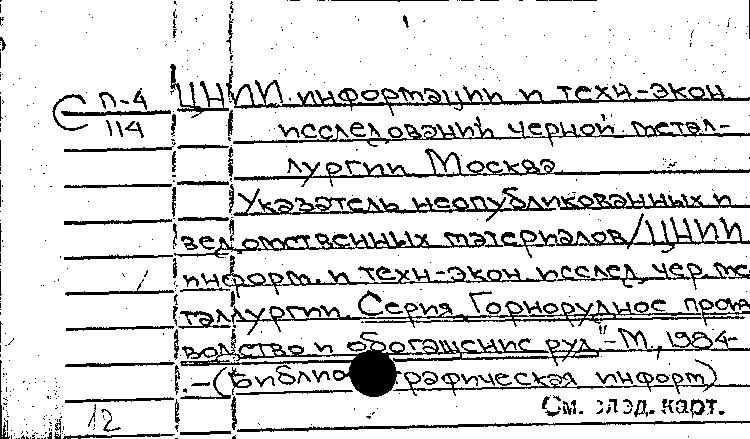 С П-4 ЦНИИ информации и техн-экон
114 исследований черной метал-
лургии Москва
Указатель неопубликованных и
ведомственных материалов/ЦНИИ
информ. и техн-экон исслед. чер. ме
таллургии. Серия "Горнорудное произ
водство и обогащение руд"-М., 1984-
.-(Библиографическая информ)
См. след. карт.
12